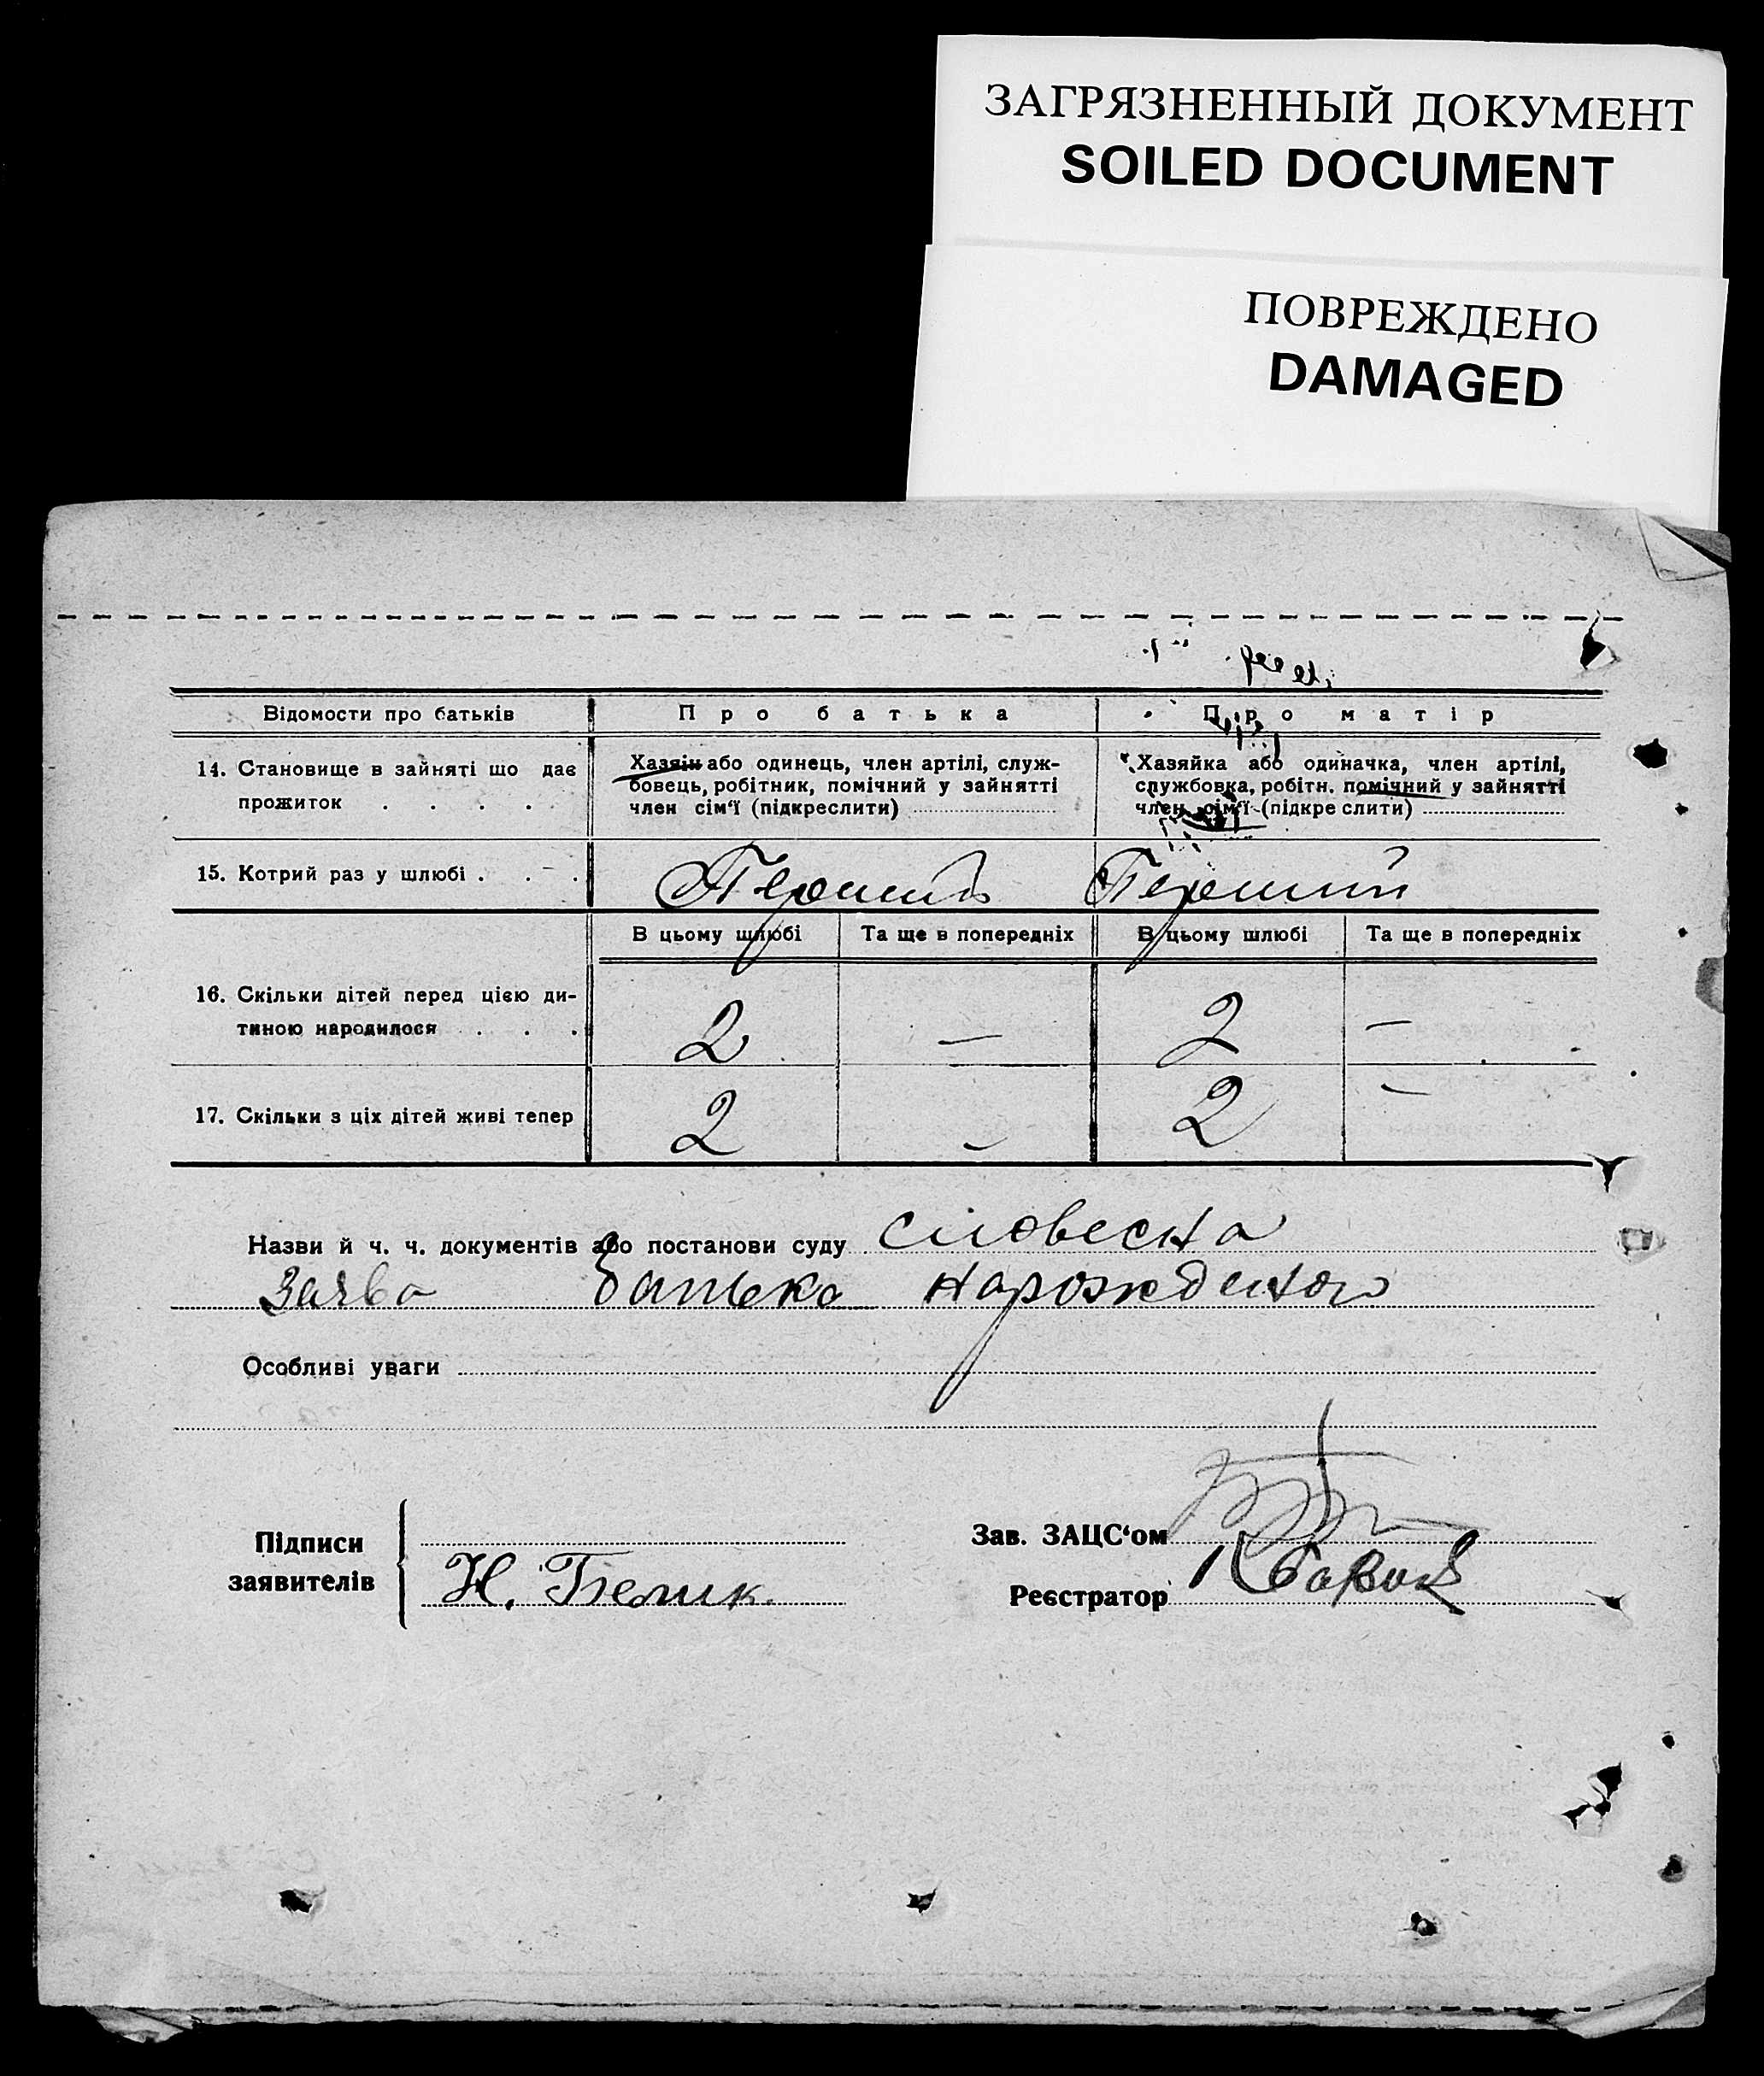 ЗАГРЯЗНЕННЫЙ ДОКУМЕНТ
SOILED DOCUMENT
ПОВРЕЖДЕНО
DAMAGED
Відомости про батьків Про батька Про матір
14. Становище в зайняті що дає
прожиток . . . .
Хазяін або одинець, член артілі, служ-
бовець, робітник, помічний у зайнятті
член сім'ї (підкреслити)
Хазяйка або одиначка, член артілі,
службовка, робітн. помічний у зайнятті
член сім'ї (підкреслити)
15. Котрий раз у шлюбі . . . Перший Перший
В цьому шлюбі Та ще в попередніх В цьому шлюбі Та ще в попередніх
16. Скільки дітей перед цією ди-
тиною народилося . . . 2 — 2 —
17. Скільки з ціх дітей живі тепер 2 — 2 —
Назви й ч. ч. документів або постанови суду словесна
Заява батька нарожденого
Особливі уваги
Підписи
заявителів
Н. Белик.
Зав. ЗАЦС‘ом
Реєстратор